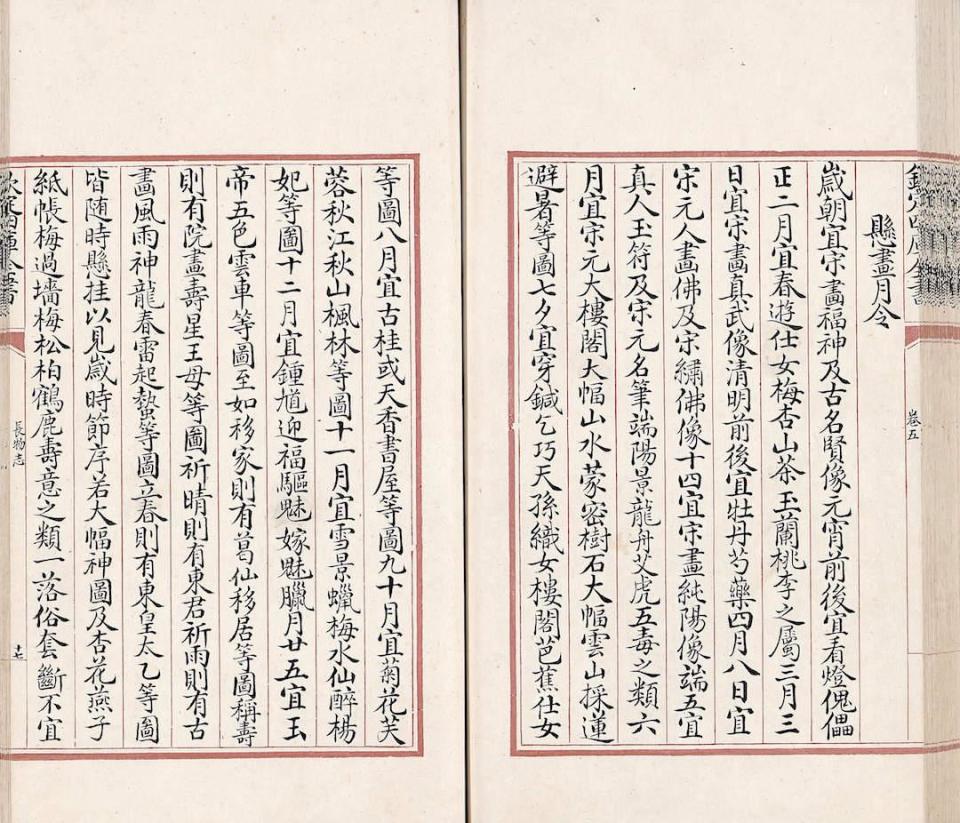 欽定四庫全書
卷五
懸畫月令
歳朝宜宋畫福神及古名賢像元宵前後宜看燈傀儡
正二月宜春遊仕女梅杏山茶玉蘭桃李之屬三月三
日宜宋畫真武像清明前後宜牡丹芍藥四月八日宜
宋元人畫佛及宋繡佛像十四宜宋畫純陽像端五宜
真人玉符及宋元名筆端陽景龍舟艾虎五毒之類六
月宜宋元大樓閣大幅山水蒙密樹石大幅雲山採蓮
避暑等圖七夕宜穿鍼乞巧天孫織女樓閣芭蕉仕女
等圖八月宜古桂或天香書屋等圖九十月宜菊花芙
蓉秋江秋山楓林等圖十一月宜雪景蠟梅水仙醉楊
妃等圖十二月宜鍾馗迎福驅魅嫁魅臘月廿五宜玉
帝五色雲車等圖至如移家則有葛仙移居等圖稱壽
則有院畫壽星王母等圖祈晴則有東君祈雨則有古
畫風雨神龍春雷起蟄等圖立春則有東皇太乙等圖
皆随時懸挂以見歳時節序若大幅神圖及杏花燕子
紙帳梅過墻梅松柏鶴鹿壽意之類一落俗套斷不宜
欽定四庫全書
長物志
十七